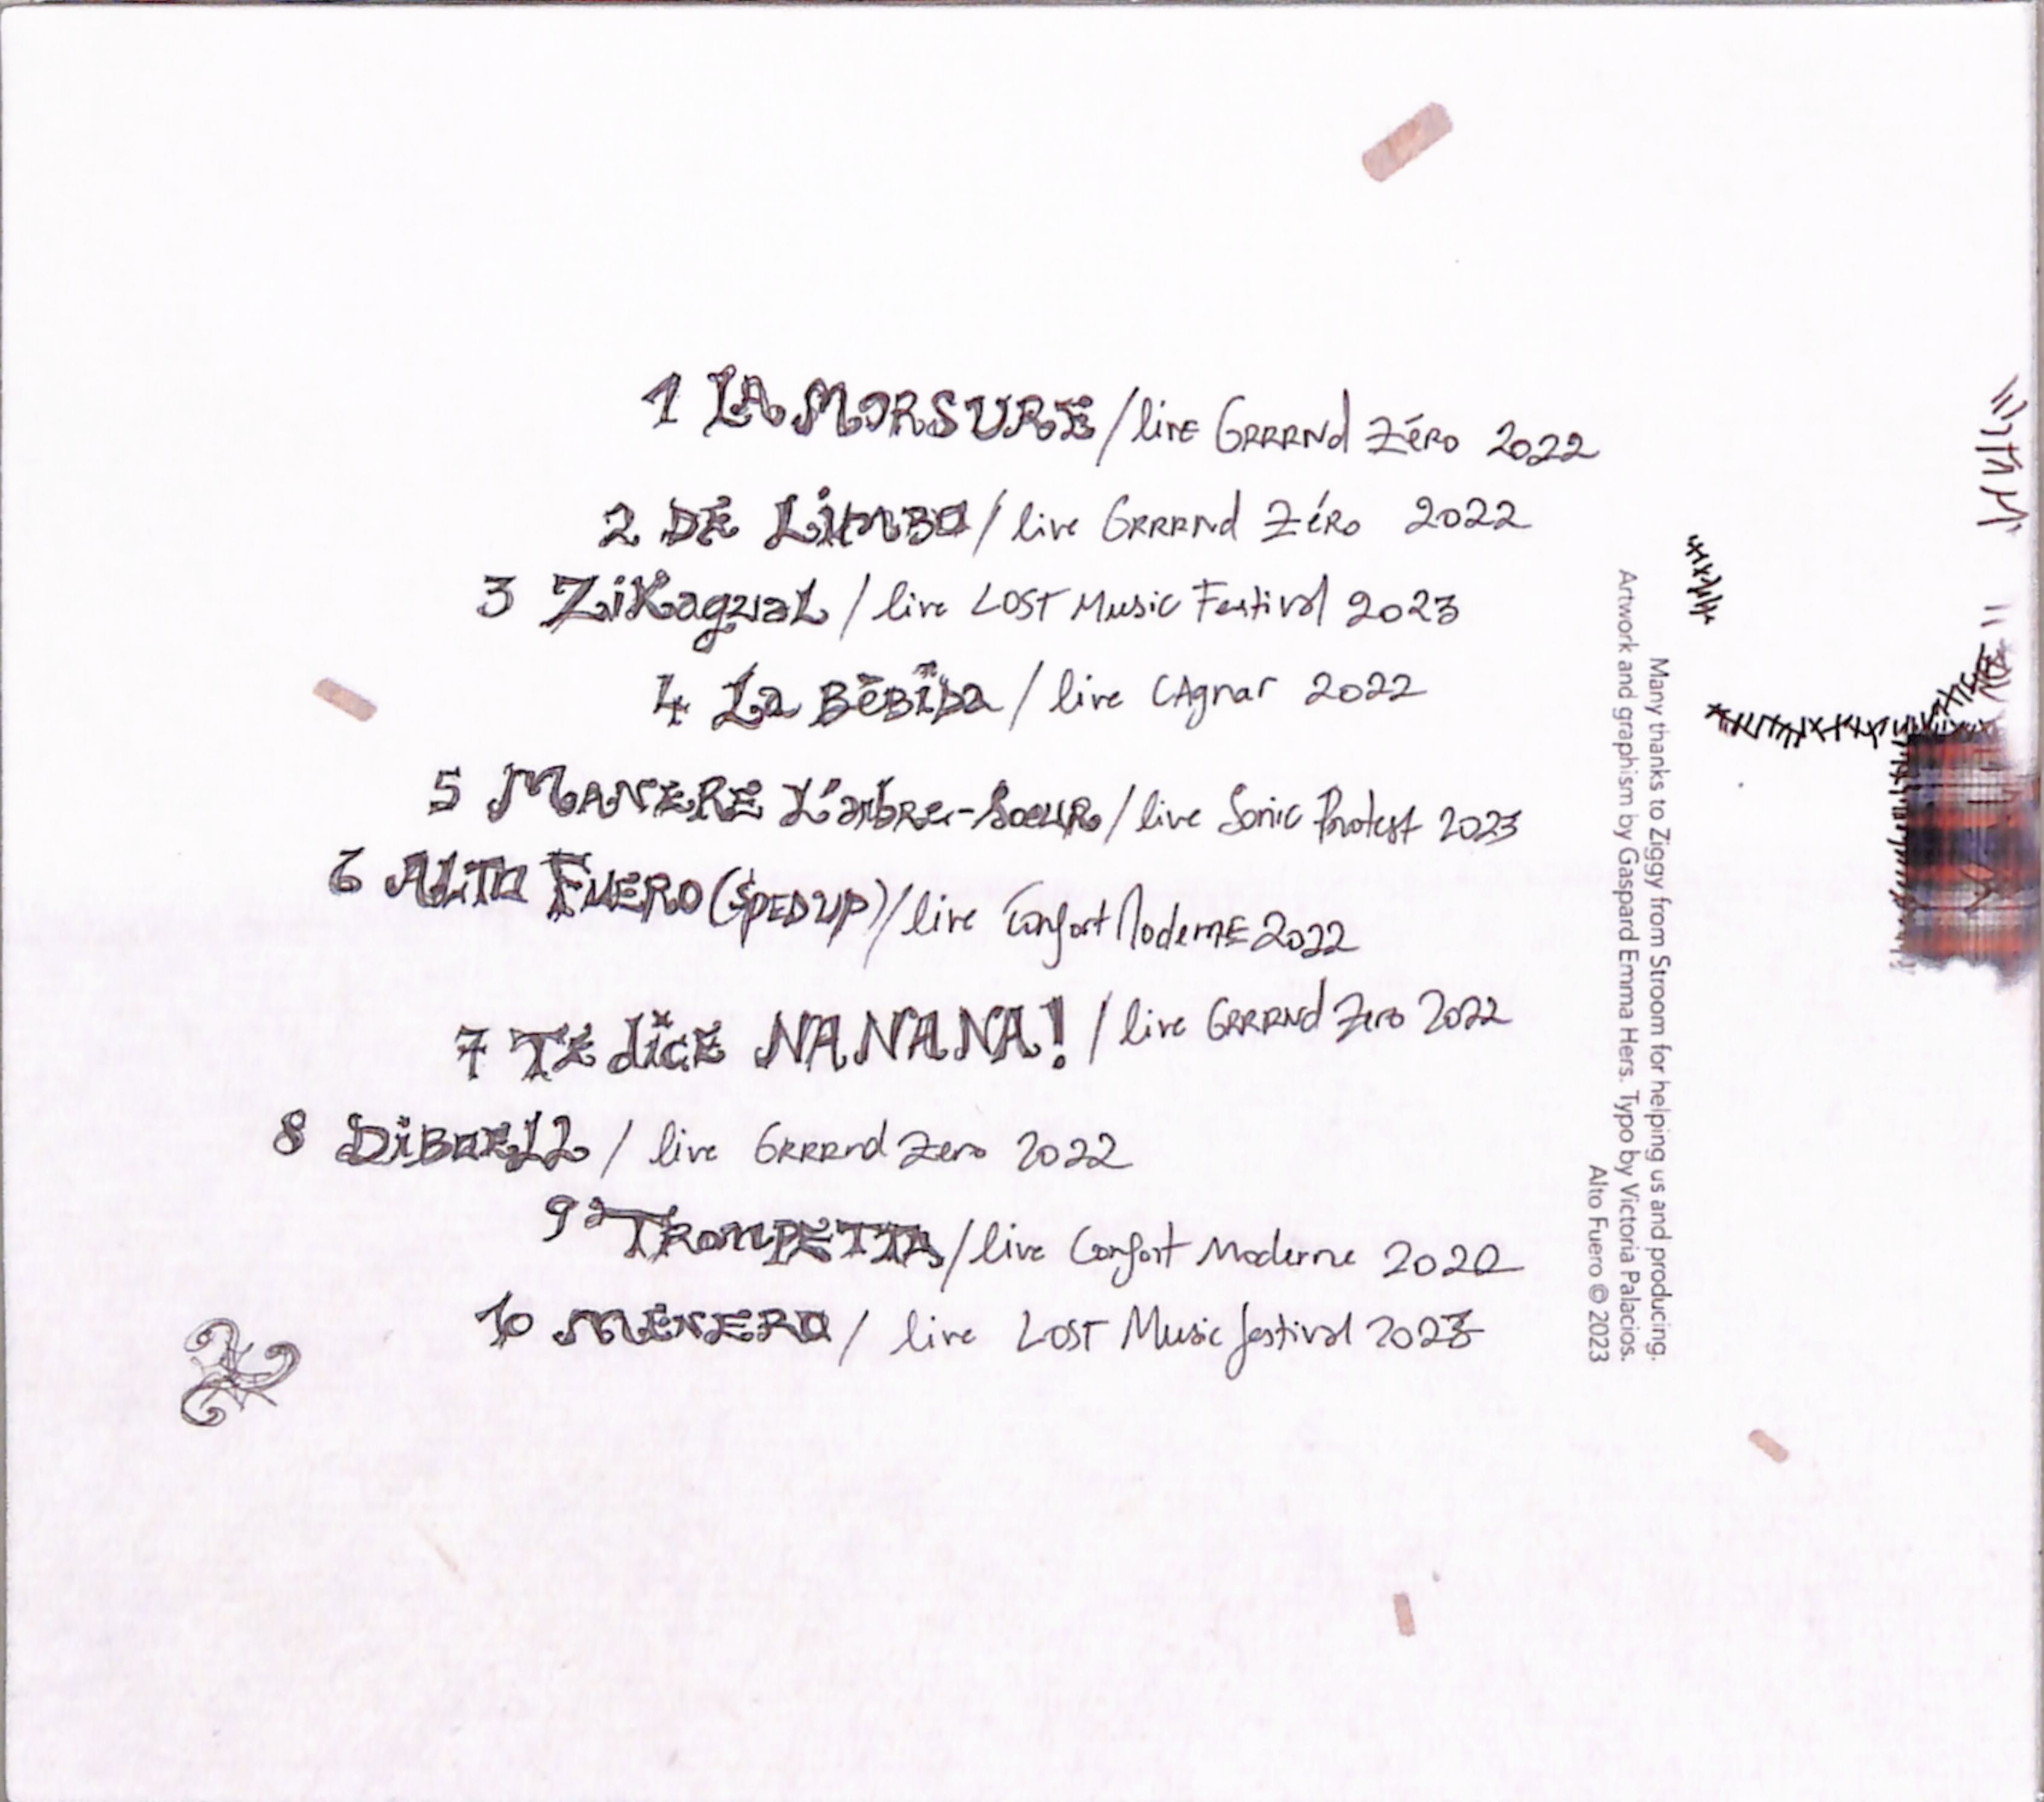 1 LA MORSURE / live GRRRNd Zéro 2022
2 DE LiMBO / live GRRRNd Zéro 2022
3 ZiKaguaL / live LOST Music Festival 2023
4 La BēBïba / live CAgnar 2022
5 MANERE L'arbre-SoeuR / live Sonic Protest 2023
6 ALTO FUERO (SPED UP) / live Confort ModernE 2022
7 TE dicE NA NA NA! / live GRRRNd Zero 2022
8 / live GRRRnd Zero 2022
9 TROMPETTA / live Confort Moderne 2022
10 MENERO / live LOST Music festival 2023
Many thanks to Ziggy from Stroom for helping us and producing.
Artwork and graphism by Gaspard Emma Hers. Typo by Victoria Palacios.
Alto Fuero © 2023